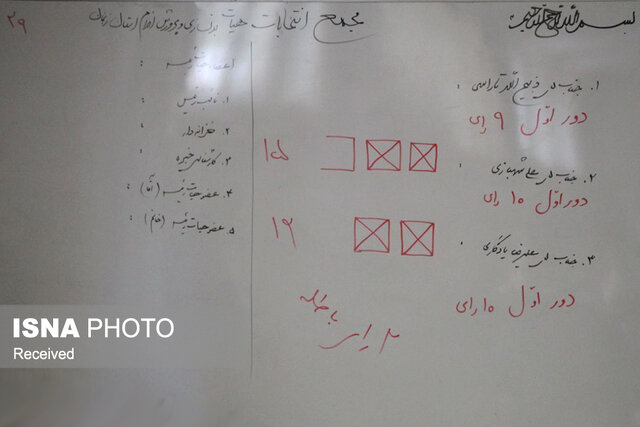 بسم الله الرحمن الرحیم
مجمع انتخابات هیات بدنسازی و پرورش اندام استان
۲۹
۱. جناب آقای ذبیح الله
دور اوّل ۹ رای
۲. جناب آقای علی شهبازی
دور اوّل ۱۰ رای
۱۵
۳. جناب آقای علیرضا یادگاری
دور اوّل ۱۰ رای
۱۲
رای باطله
اعضاء هیات رئیسه :
۱. نائب رئیس :
۲. خزانه دار :
۳. کارشناس خبره :
۴. عضو هیات رئیسه (آقا) :
۵. عضو هیات رئیسه (خانم) :
ISNA PHOTO
Received